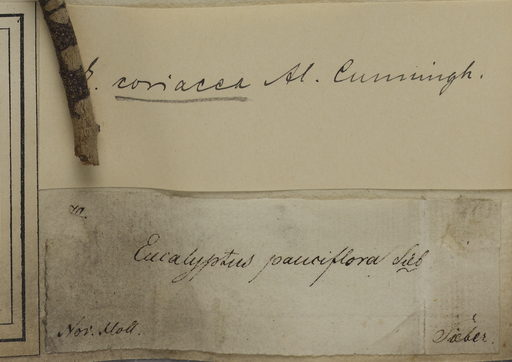 coriacea Al. Cunningh.
Eucalyptus pauciflora Sieb
Nov. Holl.
Sieber.